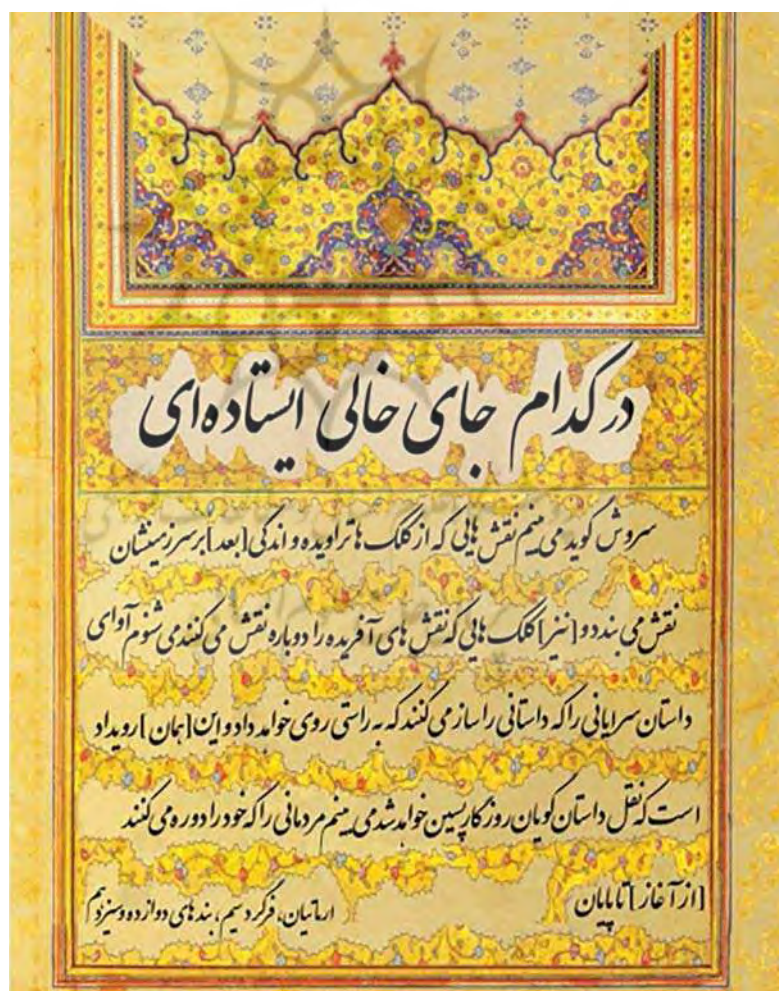 در کدام جای خالی ایستاده‌ای
سروش گوید می بینم نقش هایی که از کلک ها تراویده و اندکی [بعد] بر سرزمینشان
نقش می بندد و [نیز] کلک هایی که نقش های آفریده را دوباره نقش می کنند می شنوم آوای
داستان سرایانی را که داستانی را ساز می کنند که به راستی روی خواهد داد و این [همان] رویداد
است که نقل داستان گویان روزگار پسین خواهد شد می بینم مردمانی را که خود را دوره می کنند
[از آغاز] تا پایان
ارماتیان، فرگرد سیم، بند های دوازده و سیزدهم